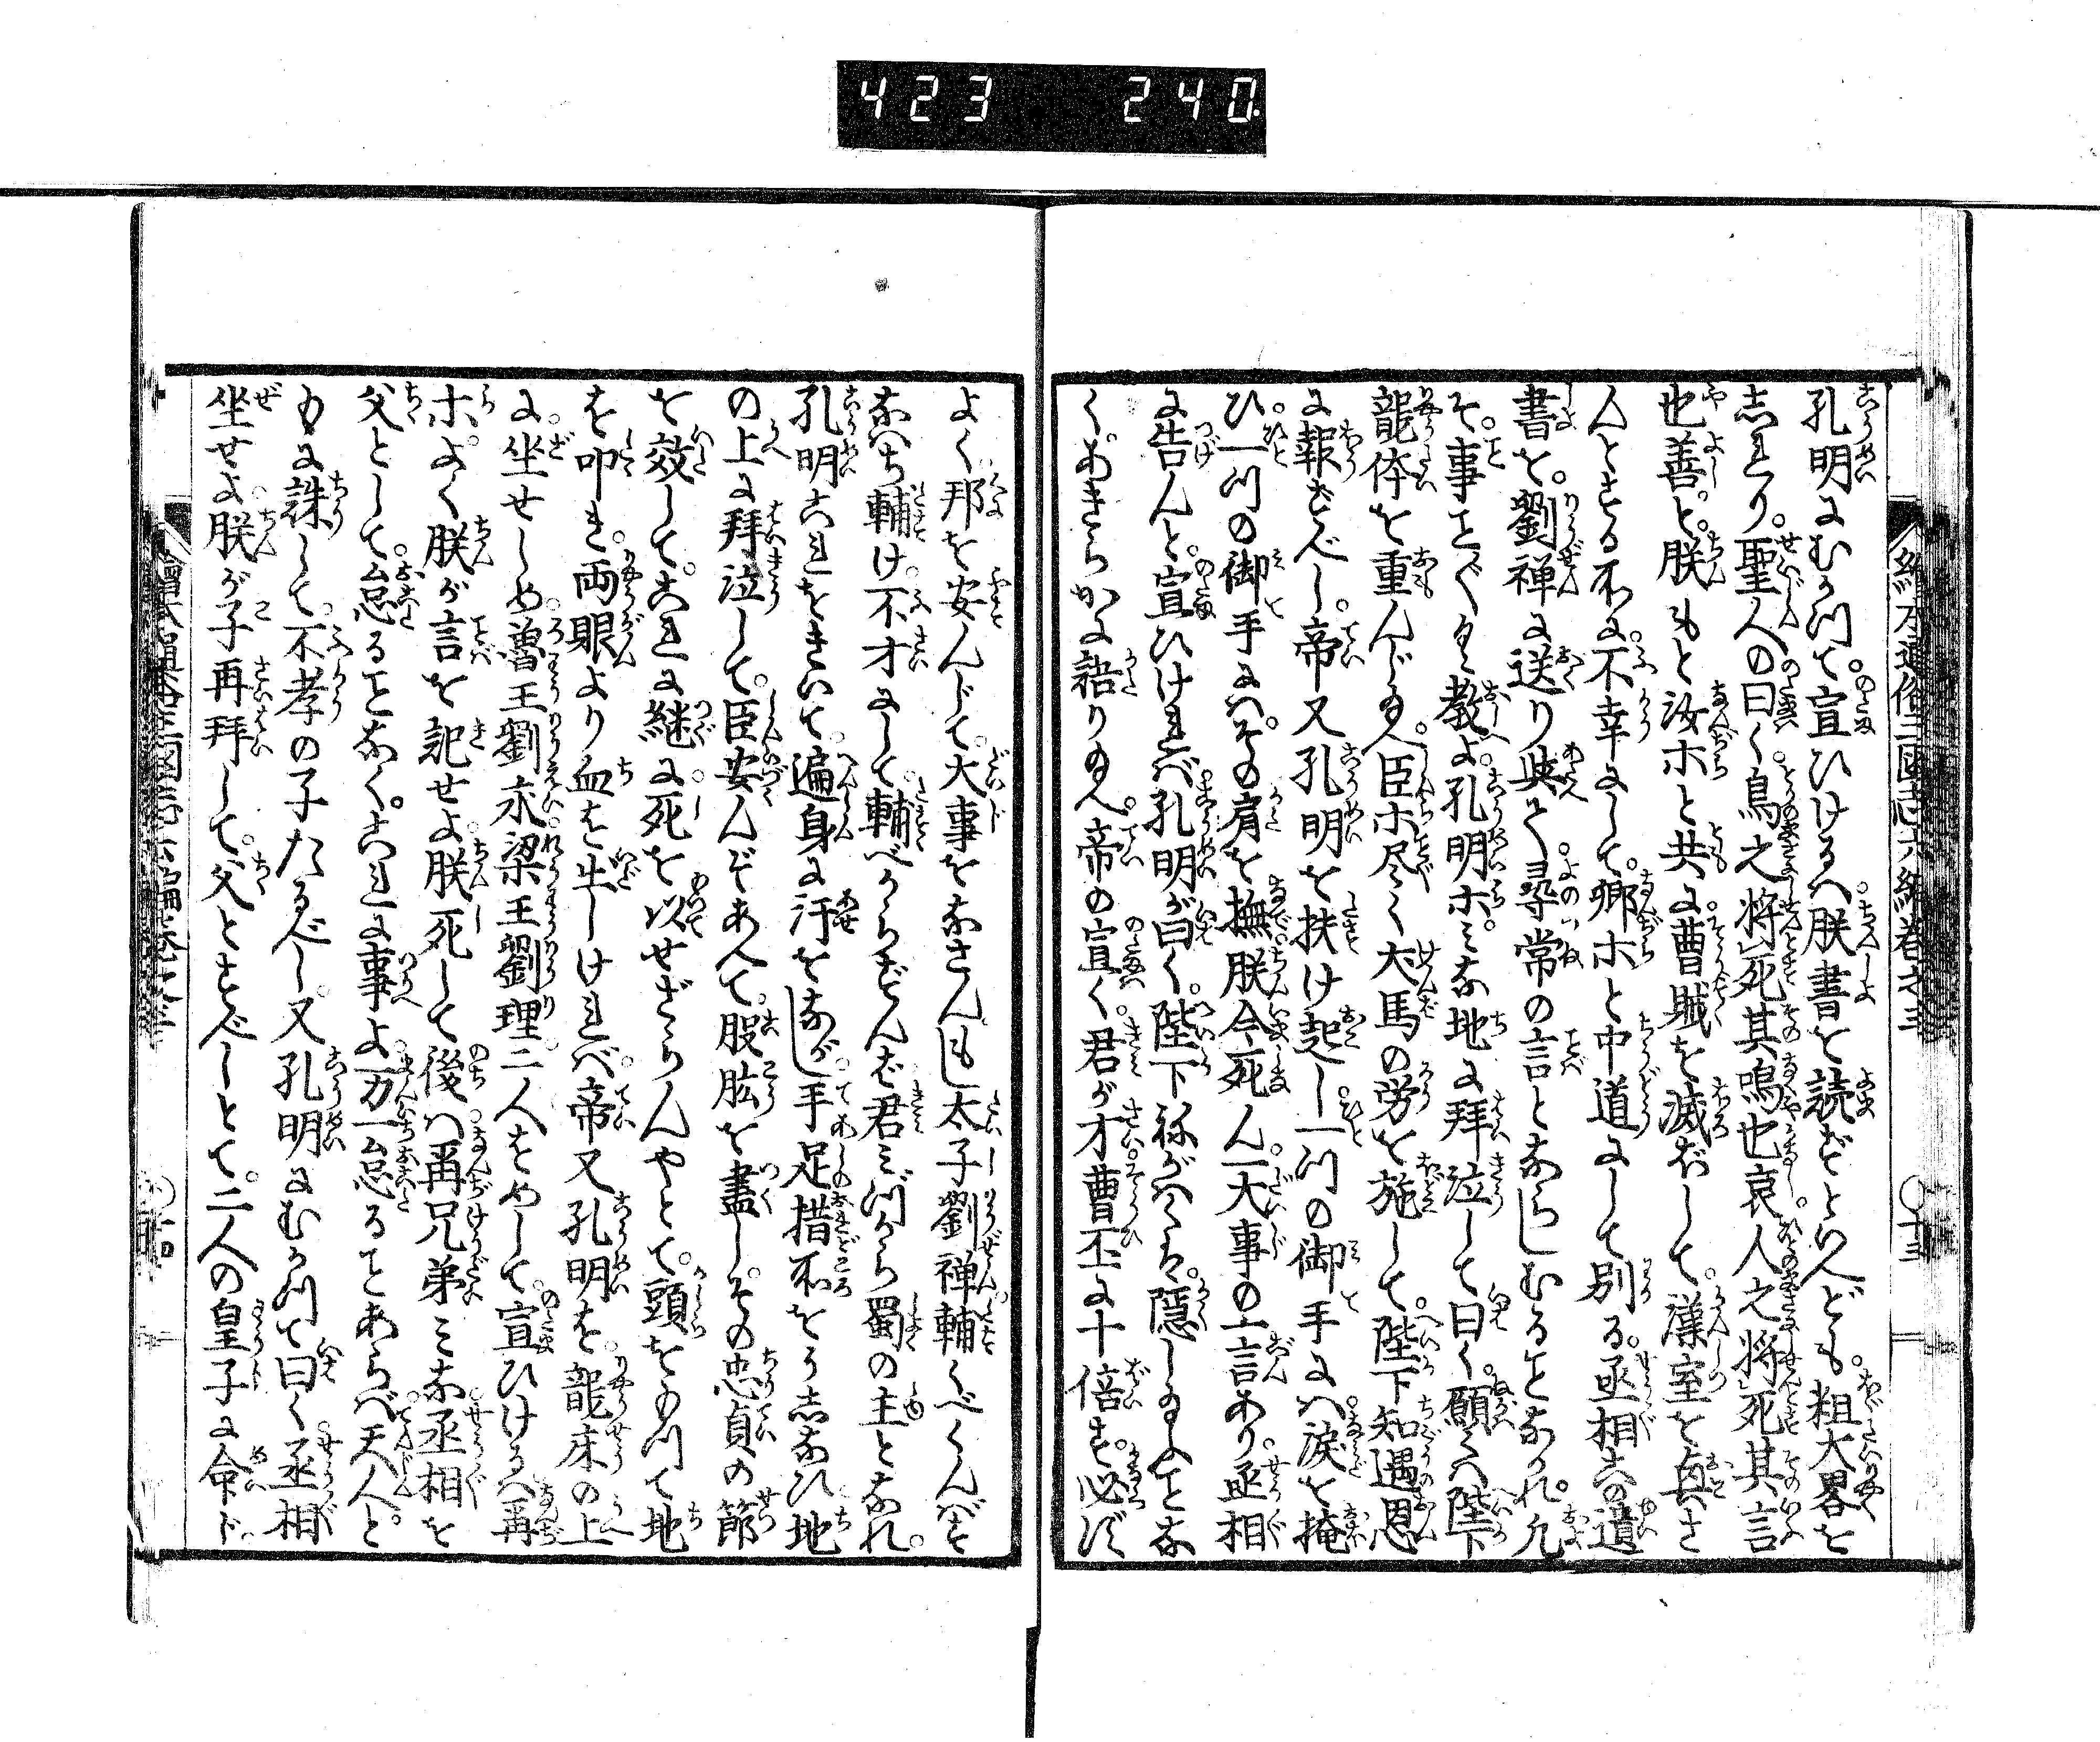 423 240
孔明にむかつて。宣ひけるハ。朕書を読ずといへども。粗大畧を
志れり。聖人の曰く。鳥之将死其鳴也哀人之将死其言
也善と。朕もと汝ホと共に曹賊を滅ぼして。漢室を興さ
んとする所に。不幸にして。卿ホと中道にして別る。丞相この遺
書を。劉禅に送り與て。尋常の言とならしむることなかれ。凡
そ。事ことごとく教よ。孔明ホミな地に拝泣して曰く。願くハ陛下
龍体を重んじ玉へ。臣ホ尽く犬馬の労を施して。陛下知遇恩
に報ずべし。帝又孔明を扶け起し。一ツの御手にハ。涙を掩
ひ。一ツの御手にハ。その肩を撫。朕今死ん。一大事の一言あり。丞相
に告んと。宣ひけれバ。孔明が曰く。陛下ねがハくハ。隠し玉ふことな
く。あきらかに語り玉へ。帝の宣く。君が才曹丕に十倍す。必ず
よく邦を安んじて。大事をなさん。もし太子劉禅輔くべくんバす
なハち輔け。不才にして輔べからずんバ。君ミづから蜀の主となれ。
孔明これをきいて。遍身に汗をながし。手足措所をうしなひ。地
の上に拝泣して。臣安んぞあへて。股肱を盡し。その忠貞の節
を效して。これに継に。死を以せざらんやとて。頭をもつて地
を叩き。両眼より血を出しけれバ。帝又孔明を。龍床の上
に。坐せしめ。魯王劉永。梁王劉理。二人をめして。宣ひけるハ。再
ホ。よく朕が言を記せよ。朕死して後ハ。再兄弟ミな丞相を
父として。怠ることなく。これに事よ。万一怠ることあらバ。天人と
もに誅して。不孝の子たるべし。又孔明にむかつて曰く。丞相
坐せよ。朕が子再拝して。父とすべしとて。二人の皇子に命ド。